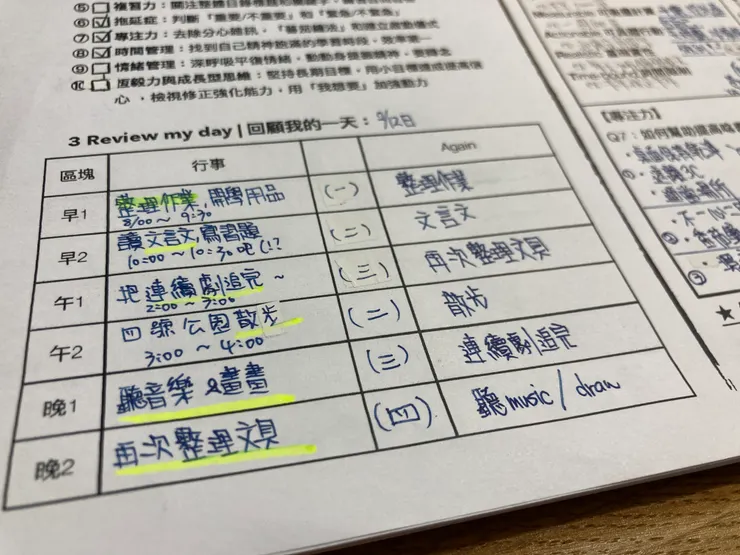 ⑤ 複習力：
⑥ 拖延症：判斷「重要/不重要」和「緊急/不緊急」
⑦ 專注力：去除分心雜訊，「蕃茄鐘法」和建立啟動儀式
⑧ 時間管理：找到自己精神飽滿的學習時段，效率第一
⑨ 情緒管理：深呼吸平復情緒，動動身體
⑩ 恆毅力與成長型思維：堅持長期目標，用小目標達成提高信
心，檢視修正強化能力，用「我想要」加強動力
3 Review my day | 回顧我的一天：9/12日
區塊 行事 Again
早1 整理作業,開學用品 (一) 整理作業
8/00～9:30
早2 讀文言文,寫習題 (二) 文言文
10:00～10:30吧(!?
午1 把連續劇追完～ (三) 再次整理文具
2:00～3:00
午2 四號公園散步 (二) 散步
3:00～4:00
晚1 聽音樂&畫畫 (三) 連續劇追完
晚2 再次整理文具 (四) 聽music/draw
【專注力】
Q7：如何幫助提高